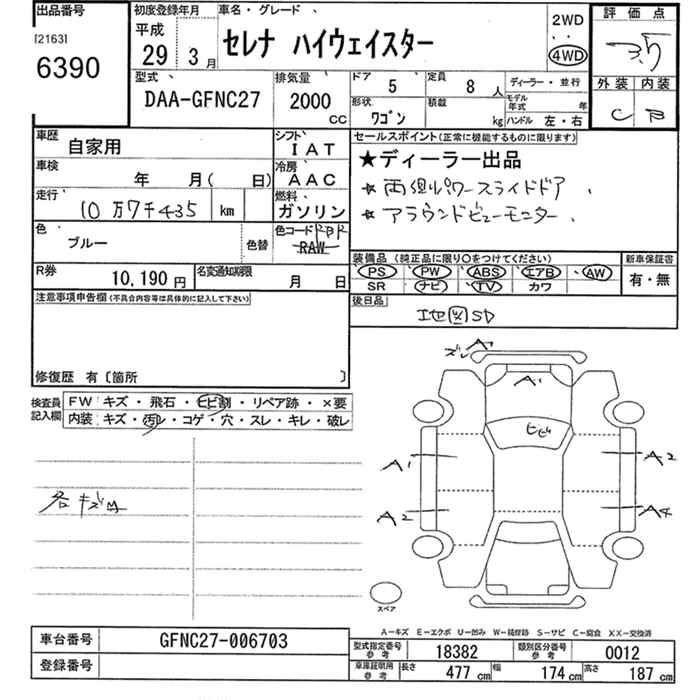 出品番号 初度登録年月 車名・グレード 2WD 評価点
[2163] 平成
6390 29年 3月 セレナ ハイウェイスター 4WD 3.5
型式 排気量 ドア 5 定員 8人 ディーラー・並行 外装 内装
DAA-GFNC27 2000cc 形状 ワゴン 積載 kg モデル年式 年 ハンドル 左・右 C B
車歴 自家用 シフト IAT セールスポイント(正常に機能するものに限ります)
車検 年 月( 日) 冷房 AAC ★ディーラー出品
走行 10万7千435 km 燃料 ガソリン ★両側パワースライドドア
★アラウンドビューモニター
色 ブルー 色替 色コード RBR RAW
装備品(純正品に限り○をつけてください) 新車保証書
R券 10,190円 名変通知期限 月 日 PS PW ABS エアB AW 有・無
SR ナビ TV カワ
注意事項申告欄(不具合内容等は具体的に記入して下さい) 後日品
地図SD
修復歴 有〔箇所 〕
検査員記入欄 FW キズ・飛石・ヒビ割・リペア跡・×要
内装 キズ・汚レ・コゲ・穴・スレ・キレ・破レ
ズレ A1
A1
ヒビ
A1 A2
各キズ凹
A2 A4
スペア
A-キズ E-エクボ U-凹み W-補修跡 S-サビ C-腐食 XX-交換済
車台番号 GFNC27-006703 型式指定番号 参考 18382 類別区分番号 参考 0012
登録番号 車庫証明用 参考 長さ 477cm 幅 174cm 高さ 187cm